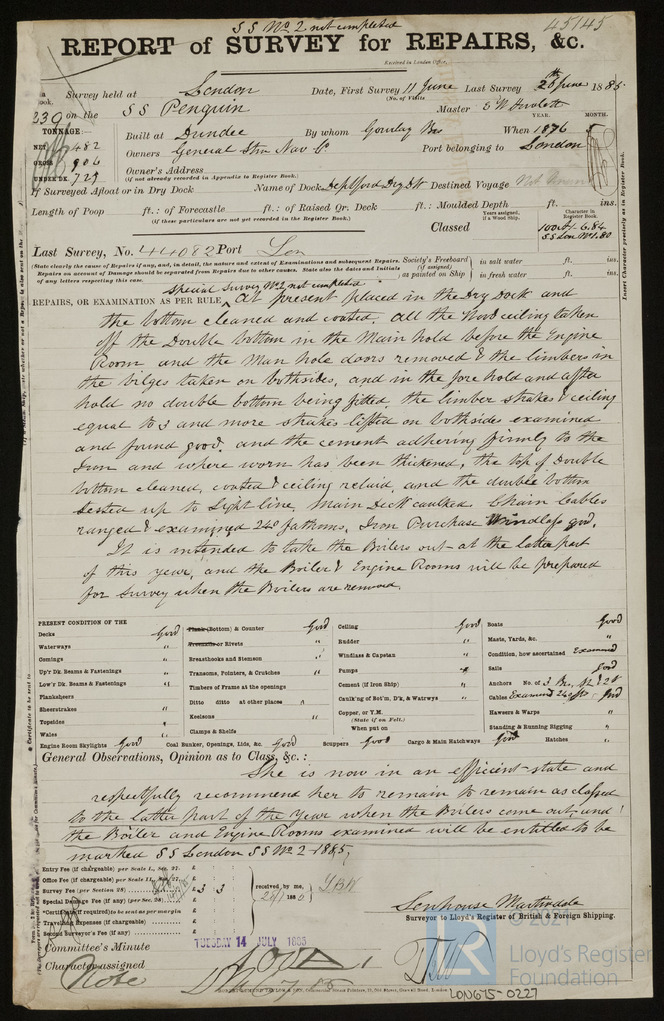 S S No 2 not completed
45145
REPORT of SURVEY for REPAIRS, &c.
Received in London Office,
239 Survey held at London Date, First Survey 11 June Last Survey 26th June 1885
(No. of Visits
on the S S Penguin Master
TONNAGE:— Built at Dundee By whom Gourlay Bros When 1876
YEAR. MONTH.
NET 482
GROSS 906
UNDER DK. 729
Owners General Stm Nav Co. Port belonging to London
Owner's Address
(if not already recorded in Appendix to Register Book.)
If Surveyed Afloat or in Dry Dock Name of Dock Deptford Dry Dk Destined Voyage
Length of Poop ft.: of Forecastle ft.: of Raised Qr. Deck ft.: Moulded Depth ft. ins.
(if these particulars are not yet recorded in the Register Book.)
Classed
Years assigned, if a Wood Ship.
Character in Register Book.
100A1 6.84
S S Lon No1.80
Last Survey, No. 44082 Port Lon
(State clearly the cause of Repairs if any, and, in detail, the nature and extent of Examinations and subsequent Repairs.
Repairs on account of Damage should be separated from Repairs due to other causes. State also the dates and Initials
of any letters respecting this case.
Society's Freeboard (if assigned) as painted on Ship
in salt water ft. ins.
in fresh water ft. ins.
Special Survey No 2 not completed
REPAIRS, OR EXAMINATION AS PER RULE, At present placed in the Dry Dock and
the bottom cleaned and coated. All the Wood ceiling taken
off the Double bottom in the Main hold before the Engine
Room and the Man hole doors removed & the limbers in
the bilges taken on bothsides, and in the fore hold and after
hold no double bottom being fitted, the limber strakes & ceiling
equal to 3 and more strakes lifted on bothsides examined
and found good. and the cement adhering firmly to the
Iron and where worn has been thickened, the top of Double
bottom cleaned, coated & ceiling relaid, and the double bottom
tested up to Light line, Main Deck caulked. Chain Cables
ranged & examined 240 fathoms, Iron Purchase Windlass good.
It is intended to take the Boilers out at the latter part
of this year, and the Boiler & Engine Rooms will be prepared
for Survey when the Boilers are removed.
PRESENT CONDITION OF THE
Decks Good
Waterways "
Comings "
Up'r Dk. Beams & Fastenings "
Low'r Dk. Beams & Fastenings "
Planksheers
Sheerstrakes "
Topsides "
Wales "
Plank (Bottom) & Counter Good
Treenails or Rivets "
Breasthooks and Stemson "
Transoms, Pointers, & Crutches "
Timbers of Frame at the openings
Ditto ditto at other places "
Keelsons "
Clamps & Shelfs
Ceiling Good
Rudder "
Windlass & Capstan "
Pumps "
Cement (if Iron Ship) "
Caulk'ng of Bot'm, D'k, & Waterways "
Copper, or Y.M.
(State if on Felt.)
When put on
Boats Good
Masts, Yards, &c. "
Condition, how ascertained Examined
Sails Good
Anchors No. of 3 Brs,
Cables Examined 240 fms Good
Hawsers & Warps "
Standing & Running Rigging "
Engine Room Skylights Good Coal Bunker, Openings, Lids, &c. Good Scuppers Good Cargo & Main Hatchways Good Hatches "
General Observations, Opinion as to Class, &c.:
She is now in an efficient state and
respectfully recommend her to remain to remain as classed
to the latter part of the year when the Boilers come out, and
the Boiler and Engine Rooms examined will be entitled to be
marked S S London S S No 2 1885,
Entry Fee (if chargeable) per Scale I., Sec. 27. £
Office Fee (if chargeable) per Scale II., Sec. 27. £
Survey Fee (per Section 28) £ 3 3
Special Damage Fee (if any) (per Sec. 28) £
*Certificate (if required) to be sent as per margin
Travelling Expenses (if chargeable) £
Second Surveyor's Fee (if any) £
received by me,
Senhouse Martindale
Surveyor to Lloyd's Register of British & Foreign Shipping.
Committee's Minute TUESDAY 14 JULY 1885
Character assigned
Note
© 2021
LR
Lloyd's Register
Foundation
LON675-0227